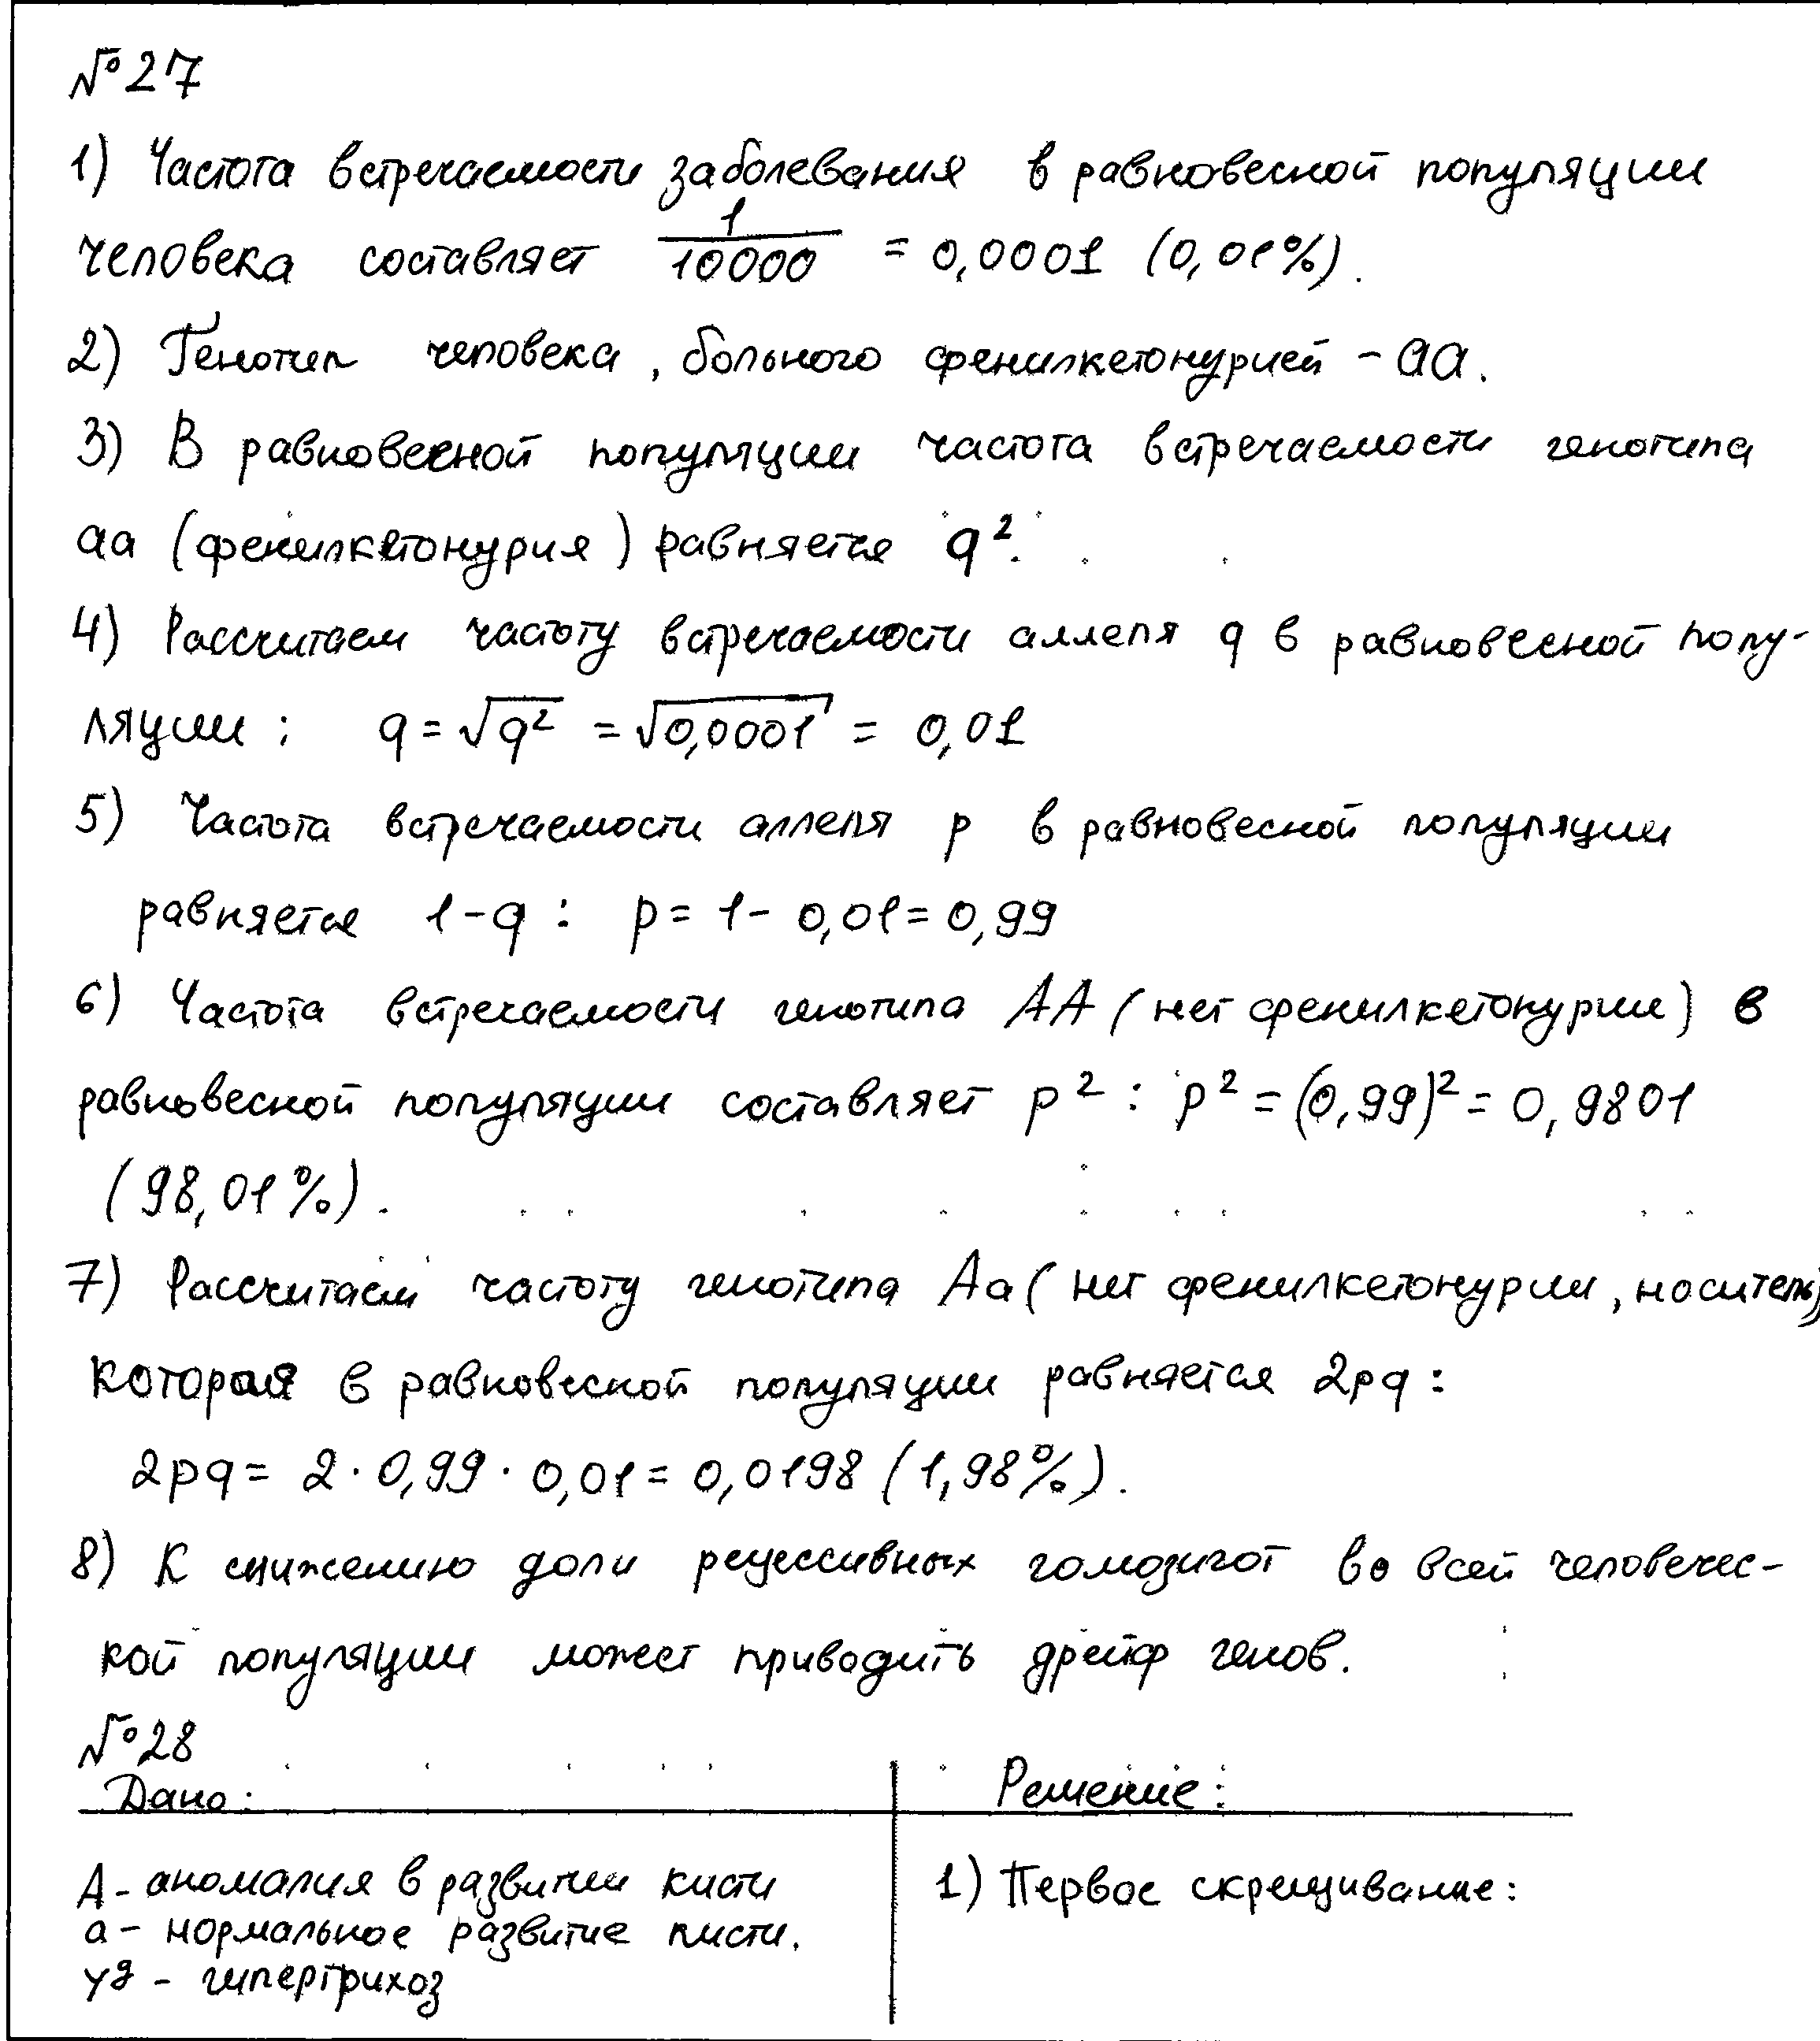 №27
1) Частота встречаемости заболевания в равновесной популяции
человека составляет 1/10000 = 0,0001 (0,01%).
2) Генотип человека, больного фенилкетонурией - aa.
3) В равновесной популяции частота встречаемости генотипа
aa (фенилкетонурия) равняется q².
4) Рассчитаем частоту встречаемости аллеля q в равновесной попу-
ляции: q = √q² = √0,0001 = 0,01
5) Частота встречаемости аллеля p в равновесной популяции
равняется 1-q: p = 1 - 0,01 = 0,99
6) Частота встречаемости генотипа AA (нет фенилкетонурии) в
равновесной популяции составляет p²: p² = (0,99)² = 0,9801
(98,01%).
7) Рассчитаем частоту генотипа Aa (нет фенилкетонурии, носитель)
которая в равновесной популяции равняется 2pq:
2pq = 2 · 0,99 · 0,01 = 0,0198 (1,98%).
8) К снижению доли рецессивных гомозигот во всей человечес-
кой популяции может приводить дрейф генов.
№28
Дано: Решение:
A - аномалия в развитии кисти 1) Первое скрещивание:
a - нормальное развитие кисти.
Yᵍ - гипертрихоз